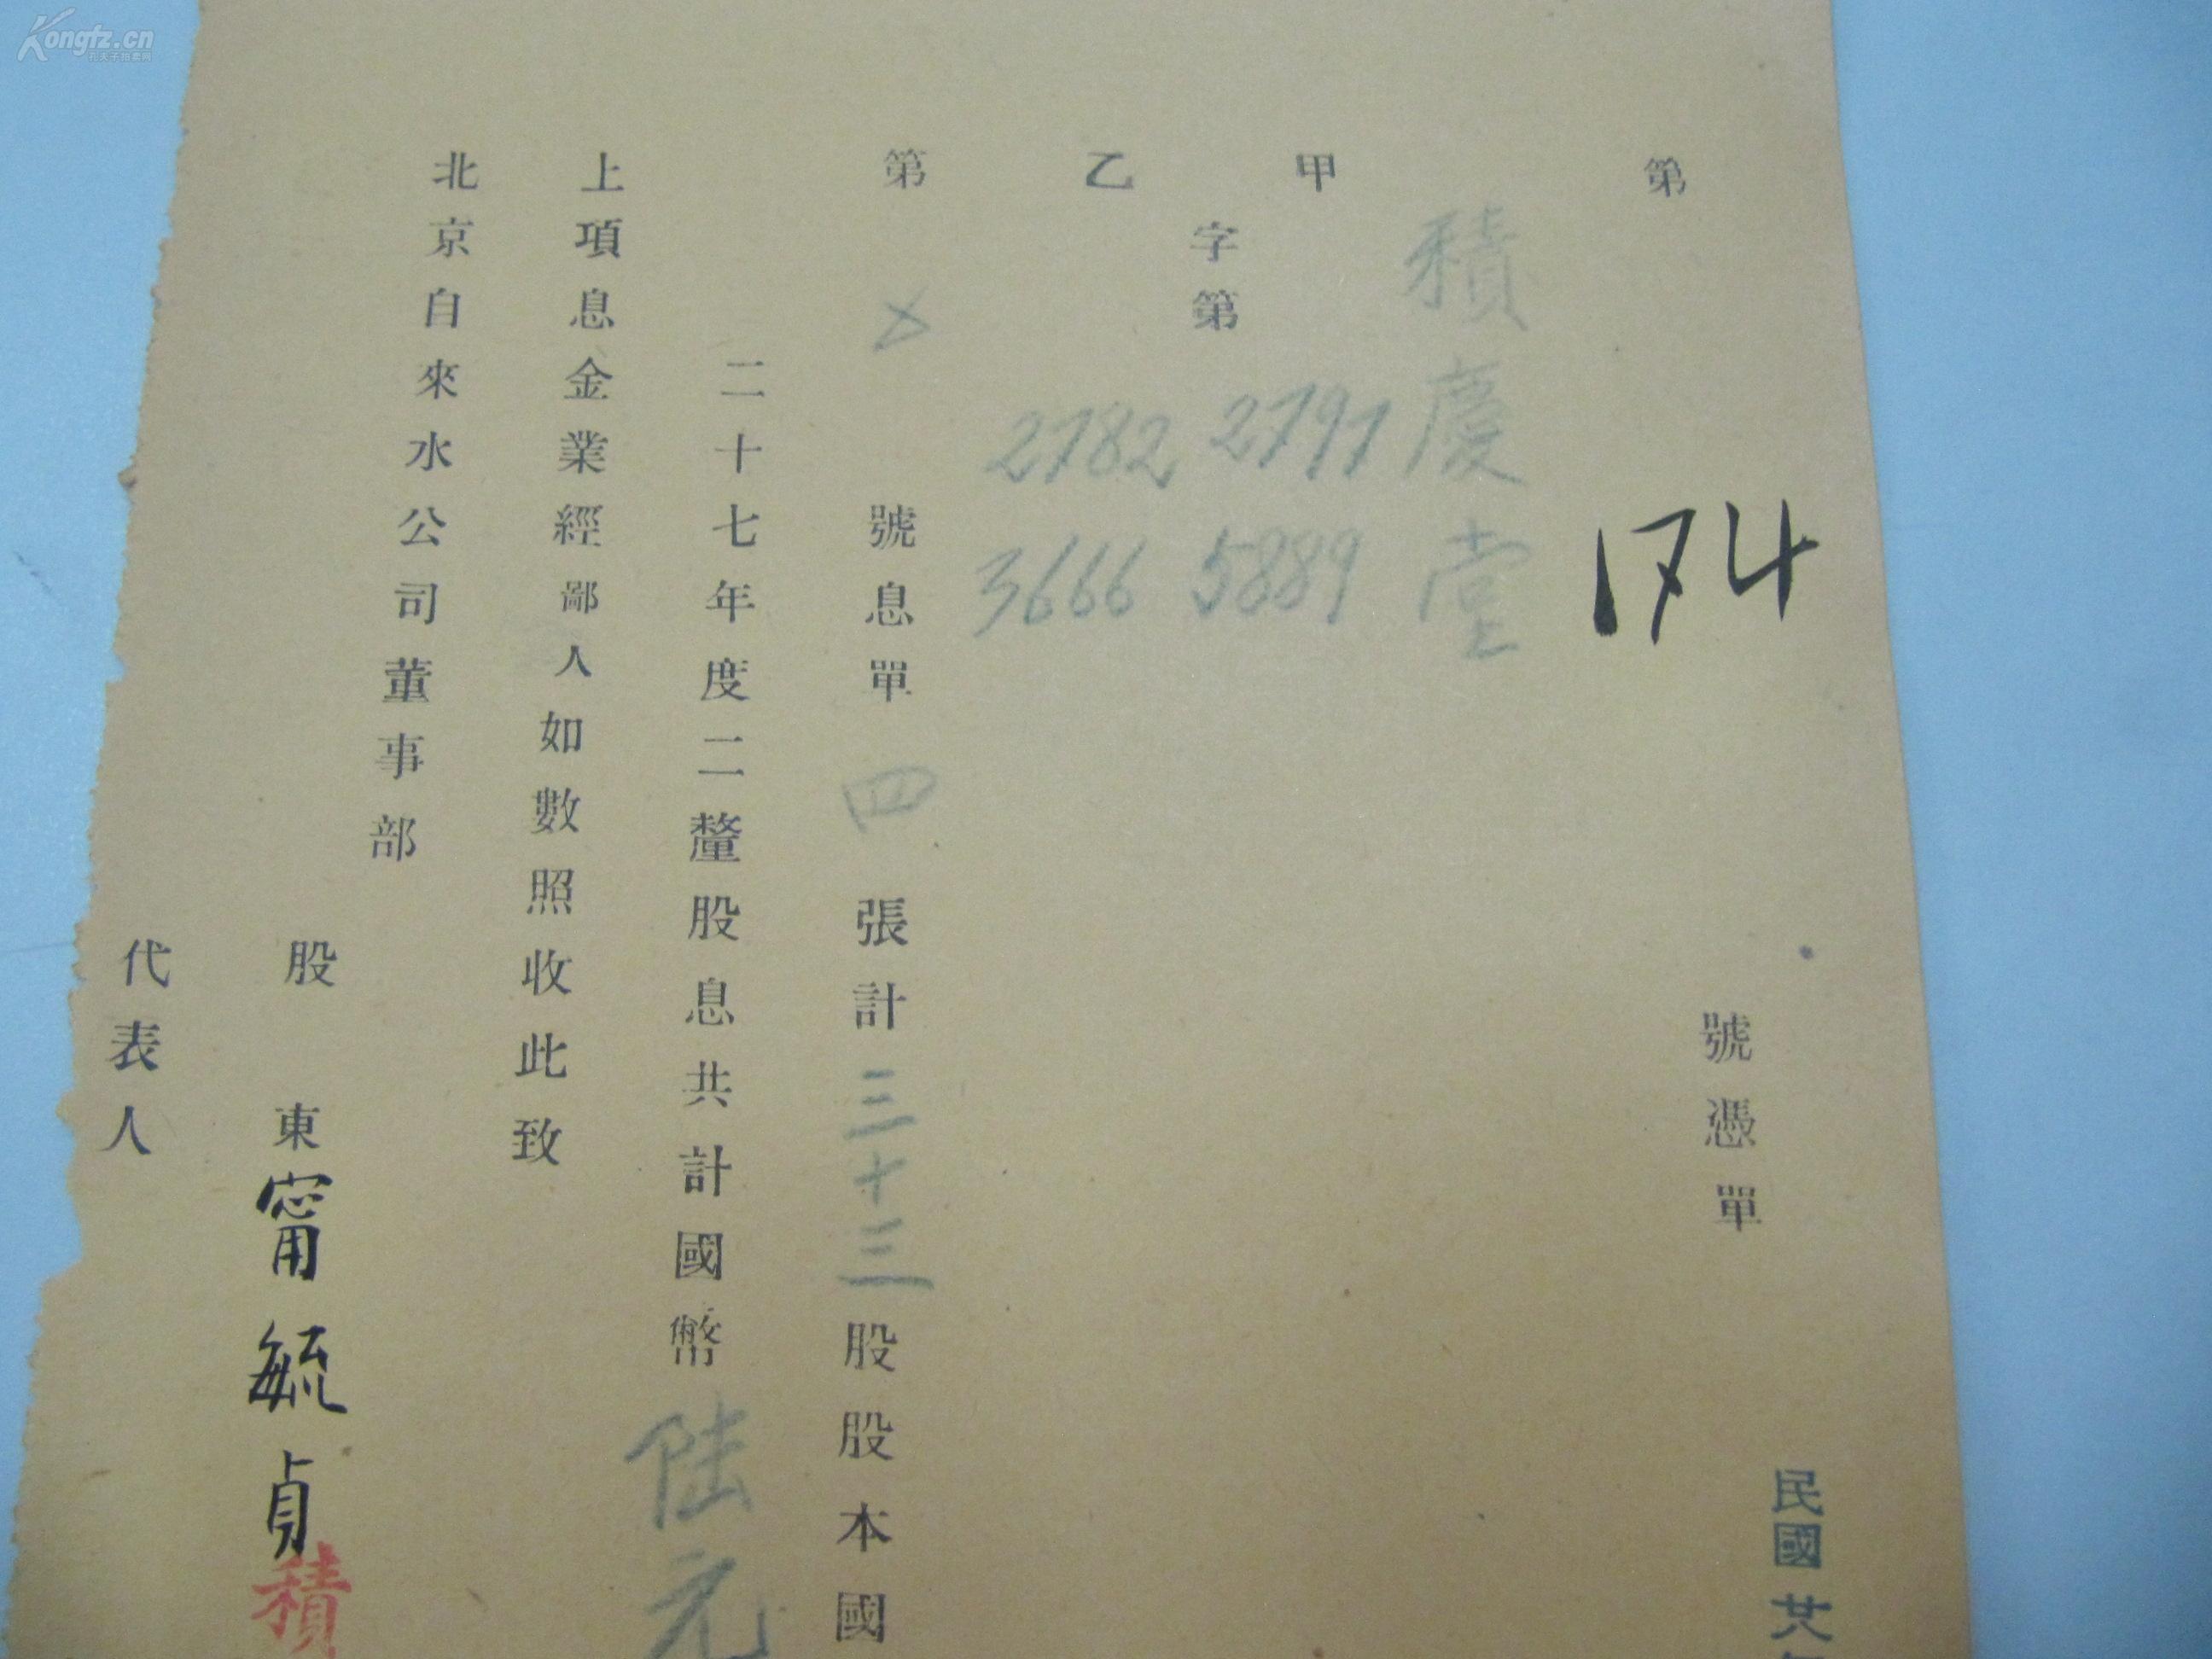 第 174 號憑單
民國廿八年
積慶堂
甲
乙
字第
2797 5889
2782 3666
第 號息單四張計三十三股股本國
二十七年度二釐股息共計國幣陸元
上項息金業經鄙人如數照收此致
北京自來水公司董事部
股東甯毓貞
積
代表人
Kongfz.cn
孔夫子拍卖网